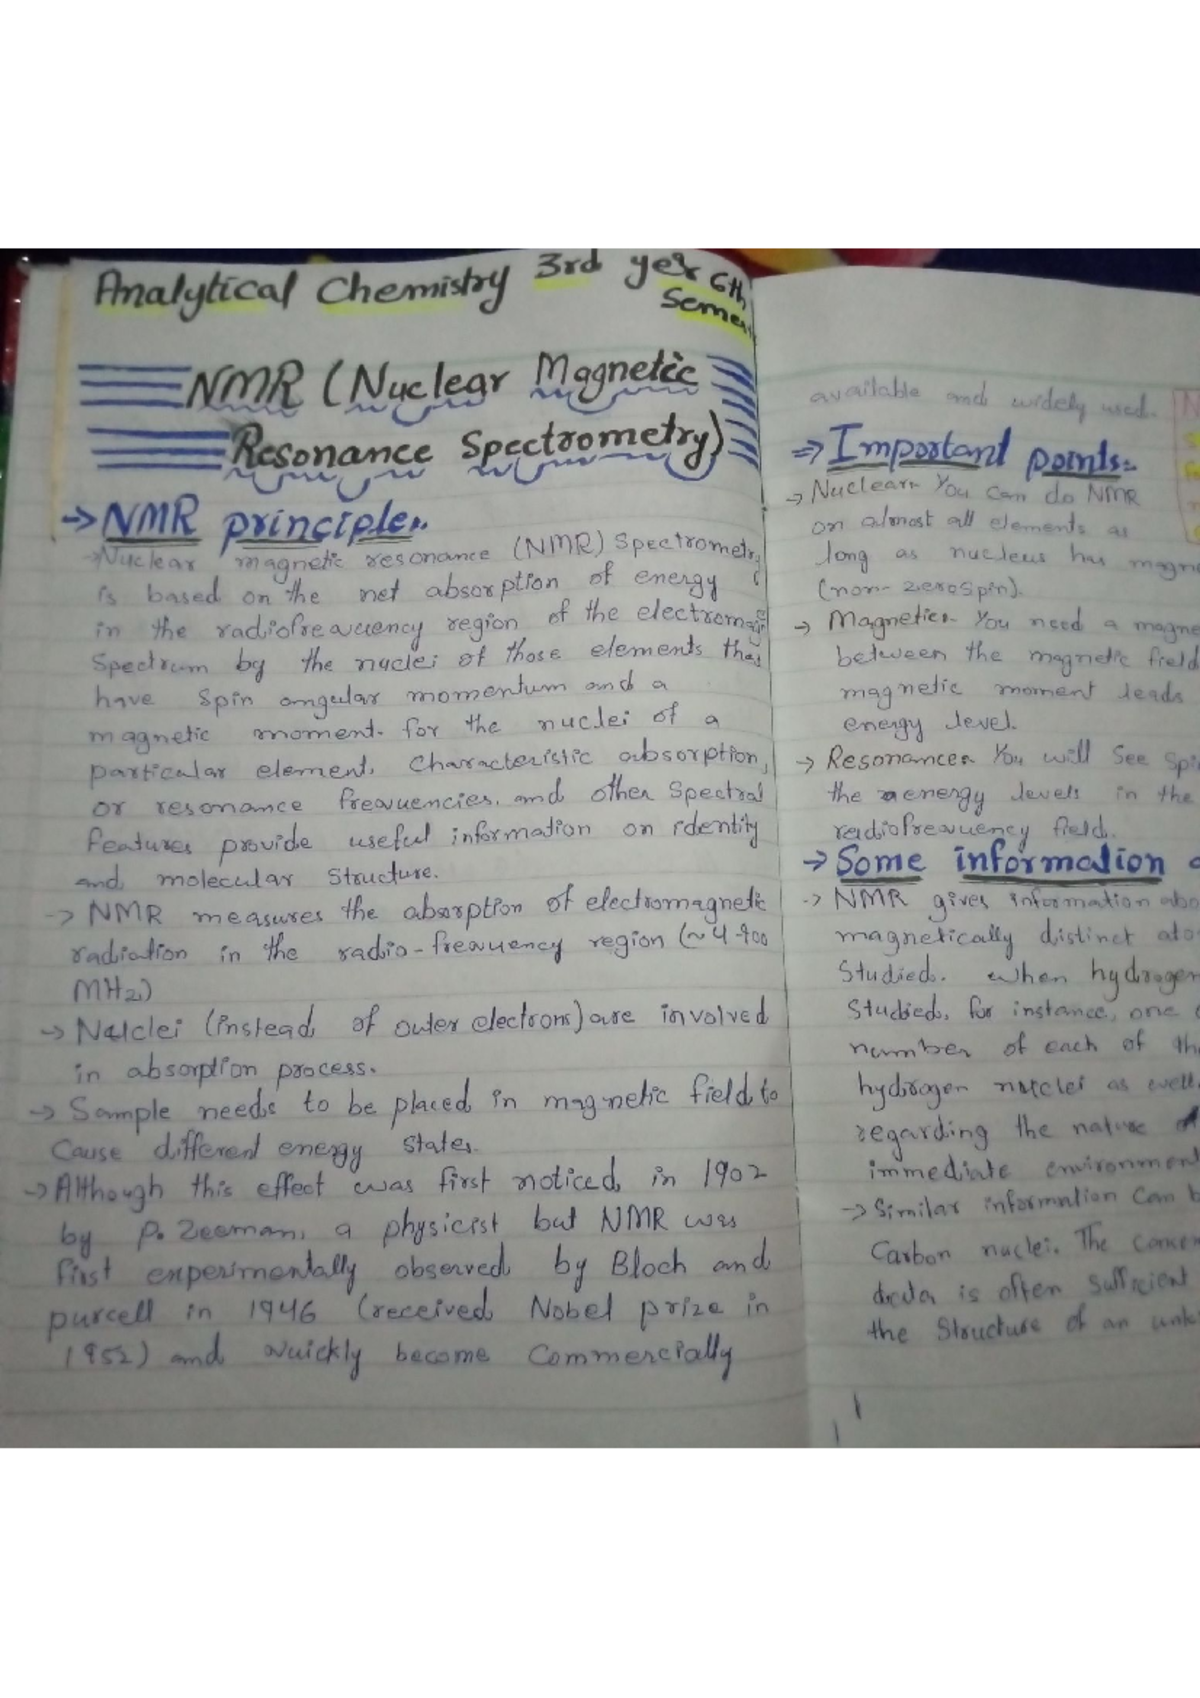 Analytical Chemistry 3rd year 6th
Semes
NMR (Nuclear Magnetic
Resonance Spectrometry)
→ NMR principle:-
→ Nuclear magnetic resonance (NMR) Spectrometr
is based on the net absorption of energy
in the radiofrequency region of the electromag
Spectrum by the nuclei of those elements that
have Spin angular momentum and a
magnetic moment. for the nuclei of a
particular element, Characteristic absorption,
or resonance frequencies, and other Spectral
features provide useful information on identity
and molecular Structure.
→ NMR measures the absorption of electromagnetic
radiation in the radio-frequency region (~4-900
MHz)
→ Nuclei (instead of outer electrons) are involved
in absorption process.
→ Sample needs to be placed in magnetic field to
Cause different energy states.
→ Although this effect was first noticed in 1902
by P. Zeeman, a physicist but NMR was
first experimentally observed by Bloch and
purcell in 1946 (received Nobel prize in
1952) and quickly become Commercially
available and widely used.
⇒ Important points:-
→ Nuclear:- You can do NMR
on almost all elements as
long as nucleus has magne
(non-zero Spin).
→ Magnetic:- You need a magne
between the magnetic field
magnetic moment leads
energy level.
→ Resonance:- You will See Spi
the energy levels in the
radiofrequency field.
→ Some information
→ NMR gives information abo
magnetically distinct ato
Studied. When hydrogen
Studied, for instance, one
number of each of the
hydrogen nuclei as well
regarding the nature of
immediate environment
→ Similar information Can b
Carbon nuclei. The
data is often Sufficient
the Structure of an unk